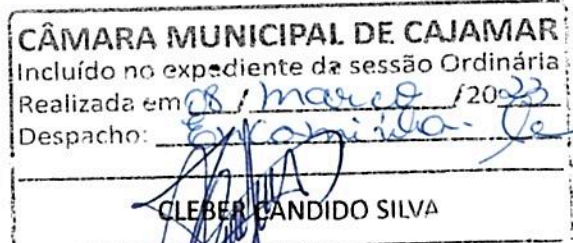 CÂMARA MUNICIPAL DE CAJAMAR
Incluído no expediente da sessão Ordinária
Realizada em 08 / março / 2023
Despacho: Encaminha-se
CLEBER CANDIDO SILVA